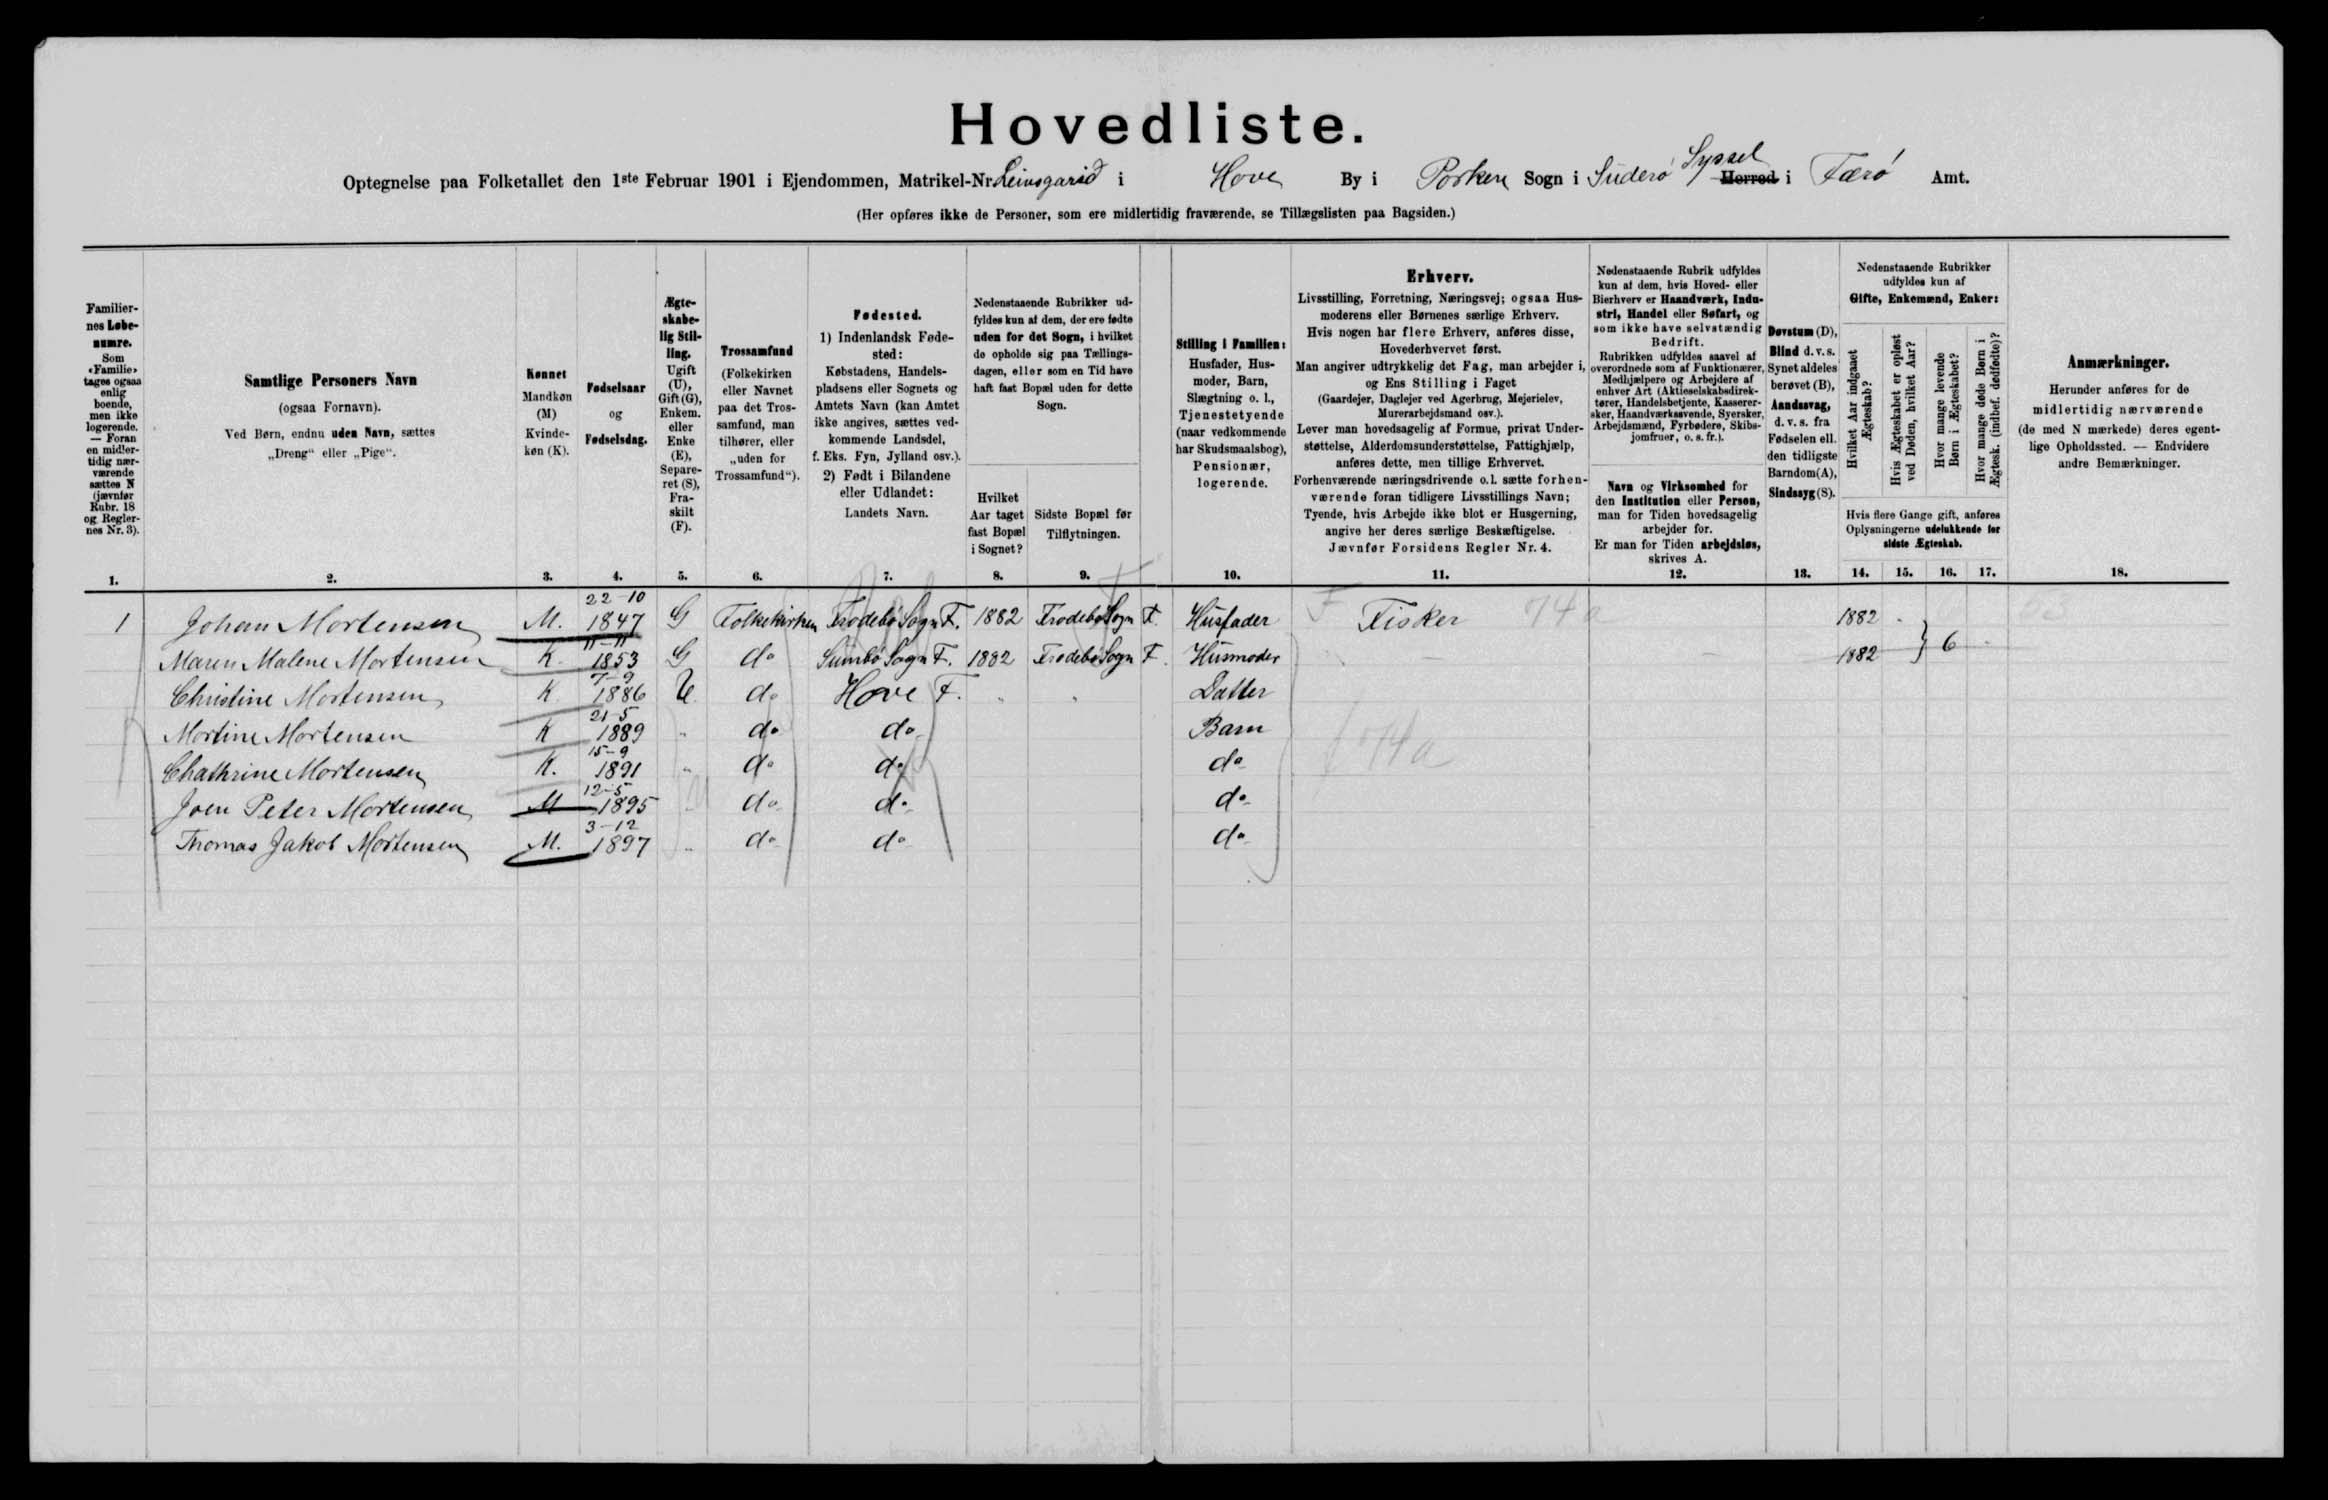 Hovedliste.
Optegnelse paa Folketallet den 1ste Februar 1901 i Ejendommen, Matrikel-Nr. Leivsgarið i Hove By i Porkere Sogn i Suderø Syssel Herred i Færø Amt.
(Her opføres ikke de Personer, som ere midlertidig fraværende, se Tillægslisten paa Bagsiden.)
Familiernes Løbenumre. Som «Familie» tages ogsaa enlig boende, men ikke logerende. — Foran en midlertidig nærværende sættes N (jævnfør Rubr. 18 og Reglernes Nr. 3).
Samtlige Personers Navn (ogsaa Fornavn). Ved Børn, endnu uden Navn, sættes „Dreng“ eller „Pige“.
Kønnet Mandkøn (M) Kvindekøn (K).
Fødselsaar og Fødselsdag.
Ægteskabelig Stilling. Ugift (U), Gift (G), Enkem. eller Enke (E), Separeret (S), Fraskilt (F).
Trossamfund (Folkekirken eller Navnet paa det Trossamfund, man tilhører, eller „uden for Trossamfund“).
Fødested. 1) Indenlandsk Fødested: Købstadens, Handelspladsens eller Sognets og Amtets Navn (kan Amtet ikke angives, sættes vedkommende Landsdel, f. Eks. Fyn, Jylland osv.). 2) Født i Bilandene eller Udlandet: Landets Navn.
Nedenstaaende Rubrikker udfyldes kun af dem, der ere fødte uden for det Sogn, i hvilket de opholde sig paa Tællingsdagen, eller som en Tid have haft fast Bopæl uden for dette Sogn.
Hvilket Aar taget fast Bopæl i Sognet?
Sidste Bopæl før Tilflytningen.
Stilling i Familien: Husfader, Husmoder, Barn, Slægtning o. l., Tjenestetyende (naar vedkommende har Skudsmaalsbog), Pensionær, logerende.
Erhverv. Livsstilling, Forretning, Næringsvej; ogsaa Husmoderens eller Børnenes særlige Erhverv. Hvis nogen har flere Erhverv, anføres disse, Hovederhvervet først. Man angiver udtrykkelig det Fag, man arbejder i, og Ens Stilling i Faget (Gaardejer, Daglejer ved Agerbrug, Mejerielev, Murerarbejdsmand osv.). Lever man hovedsagelig af Formue, privat Understøttelse, Alderdomsunderstøttelse, Fattighjælp, anføres dette, men tillige Erhvervet. Forhenværende næringsdrivende o. l. sætte forhenværende foran tidligere Livsstillings Navn; Tyende, hvis Arbejde ikke blot er Husgerning, angive her deres særlige Beskæftigelse. Jævnfør Forsidens Regler Nr. 4.
Nedenstaaende Rubrik udfyldes kun af dem, hvis Hoved- eller Bierhverv er Haandværk, Industri, Handel eller Søfart, og som ikke have selvstændig Bedrift. Rubrikken udfyldes saavel af overordnede som af Funktionærer, Medhjælpere og Arbejdere af enhver Art (Aktieselskabsdirektører, Handelsbetjente, Kasserersker, Haandværkssvende, Syersker, Arbejdsmænd, Fyrbødere, Skibsjomfruer, o. s. fr.).
Navn og Virksomhed for den Institution eller Person, man for Tiden hovedsagelig arbejder for. Er man for Tiden arbejdsløs, skrives A.
Døvstum (D), Blind d. v. s. Synet aldeles berøvet (B), Aandssvag, d. v. s. fra Fødselen ell. den tidligste Barndom (A), Sindssyg (S).
Nedenstaaende Rubrikker udfyldes kun af Gifte, Enkemænd, Enker:
Hvilket Aar indgaaet Ægteskab?
Hvis Ægteskabet er opløst ved Døden, hvilket Aar?
Hvor mange levende Børn i Ægteskabet?
Hvor mange døde Børn i Ægtesk. (indbef. dødfødte)?
Hvis flere Gange gift, anføres Oplysningerne udelukkende for sidste Ægteskab.
Anmærkninger. Herunder anføres for de midlertidig nærværende (de med N mærkede) deres egentlige Opholdssted. — Endvidere andre Bemærkninger.
1. 2. 3. 4. 5. 6. 7. 8. 9. 10. 11. 12. 13. 14. 15. 16. 17. 18.
1 Johan Mortensen M. 22-10 1847 G Folkekirken Frodebø Sogn F. 1882 Frodebø Sogn F. Husfader Fisker 74a 1882
Maren Malene Mortensen K. 11-11 1853 G do Sumbø Sogn F. 1882 Frodebø Sogn F. Husmoder 1882 } 6
Christine Mortensen K 7-9 1886 U do Hove F. Datter
Mortine Mortensen K 21-5 1889 " do do Barn
Chathrine Mortensen K. 15-9 1891 " do do do 74a
Joen Peter Mortensen M 12-5 1895 " do do do
Thomas Jakob Mortensen M. 3-12 1897 " do do do